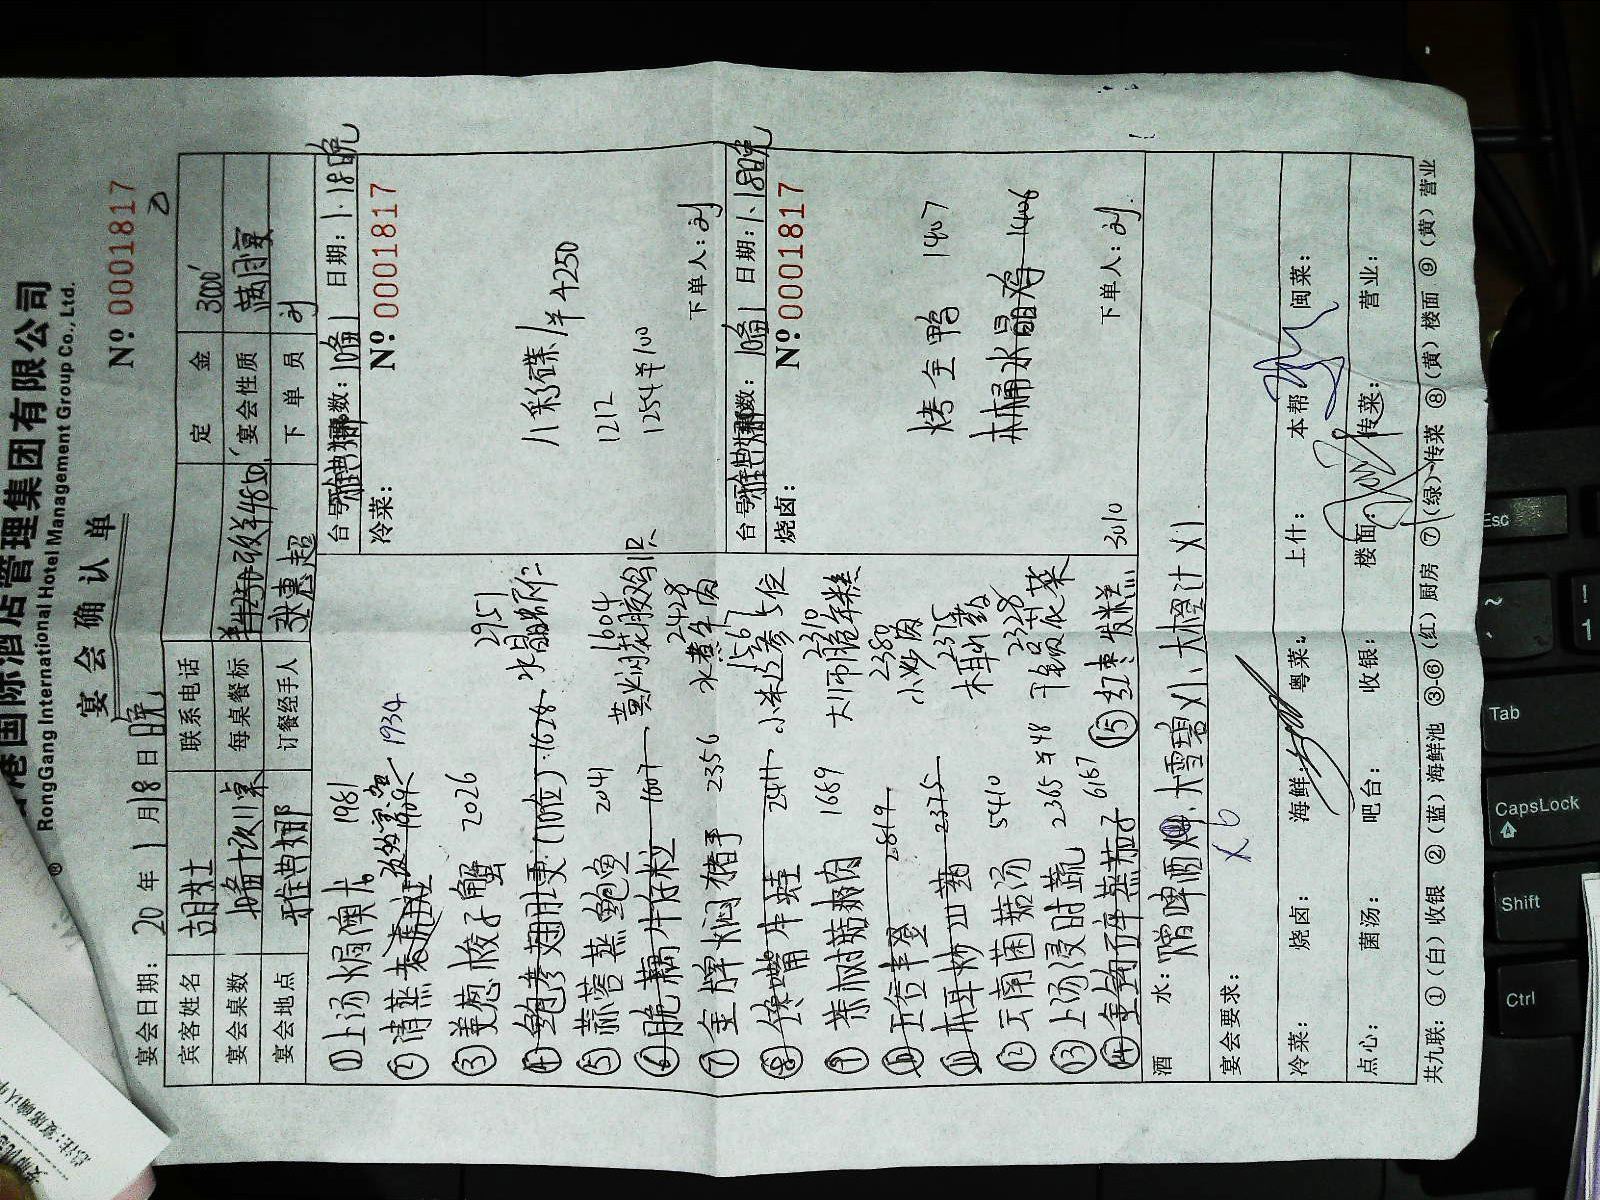 港国际酒店管理集团有限公司
RongGang International Hotel Management Group Co., Ltd.
宴会确认单
宴会日期: 20 年 1 月 18 日 晚
Nº 0001817
宾客姓名 胡女士 联系电话 定金 3000
宴会桌数 每桌餐标 宴会性质 满月宴
宴会地点 雅典娜 订餐经手人 张惠超 下单员 刘
① 上汤焗澳龙 1981
② 清蒸 1934
③ 姜葱 蟹 2026
④ 鲍参翅肚羹(10位) 1628 水晶虾仁 2951
⑤ 蒜蓉蒸鲍鱼 2041
⑥ 脆藕牛仔粒 1607 黄焖花胶鸡 1只 1604
⑦ 金牌焖猪手 2356 水煮牛肉 2428
⑧ 牛蛙 2411 小米辽参 5位 1567
⑨ 茶树菇爽肉 1669 大师脆年糕 2310
⑩ 五谷丰登 2819 小炒肉 2380
⑪ 木耳炒山药 2375 木耳山药 2375
⑫ 云南菌菇汤 5410 干锅花菜 2328
⑬ 上汤浸时蔬 2365 ¥48
⑭ 蒸茄子 6167 ⑮ 红枣发糕 3010
台号: 雅典娜 数: 10备1 日期: 1.18晚
冷菜: Nº 0001817
八彩碟/¥4250
1212
1254 ¥100
下单人: 刘
台号: 雅典娜 数: 10备1 日期: 1.18晚
烧卤: Nº 0001817
烤全鸭 1407
水晶 1406
下单人: 刘
酒水: 赠啤酒 大雪碧X1、大橙汁X1
X6
宴会要求:
冷菜: 烧卤: 海鲜: 粤菜: 上什: 本帮: 闽菜:
点心: 菌汤: 吧台: 收银: 楼面: 传菜: 营业:
共九联: ①(白)收银 ②(蓝)海鲜池 ③-⑥(红)厨房 ⑦(绿)传菜 ⑧(黄)楼面 ⑨(黄)营业
Esc
Tab
CapsLock
Shift
Ctrl